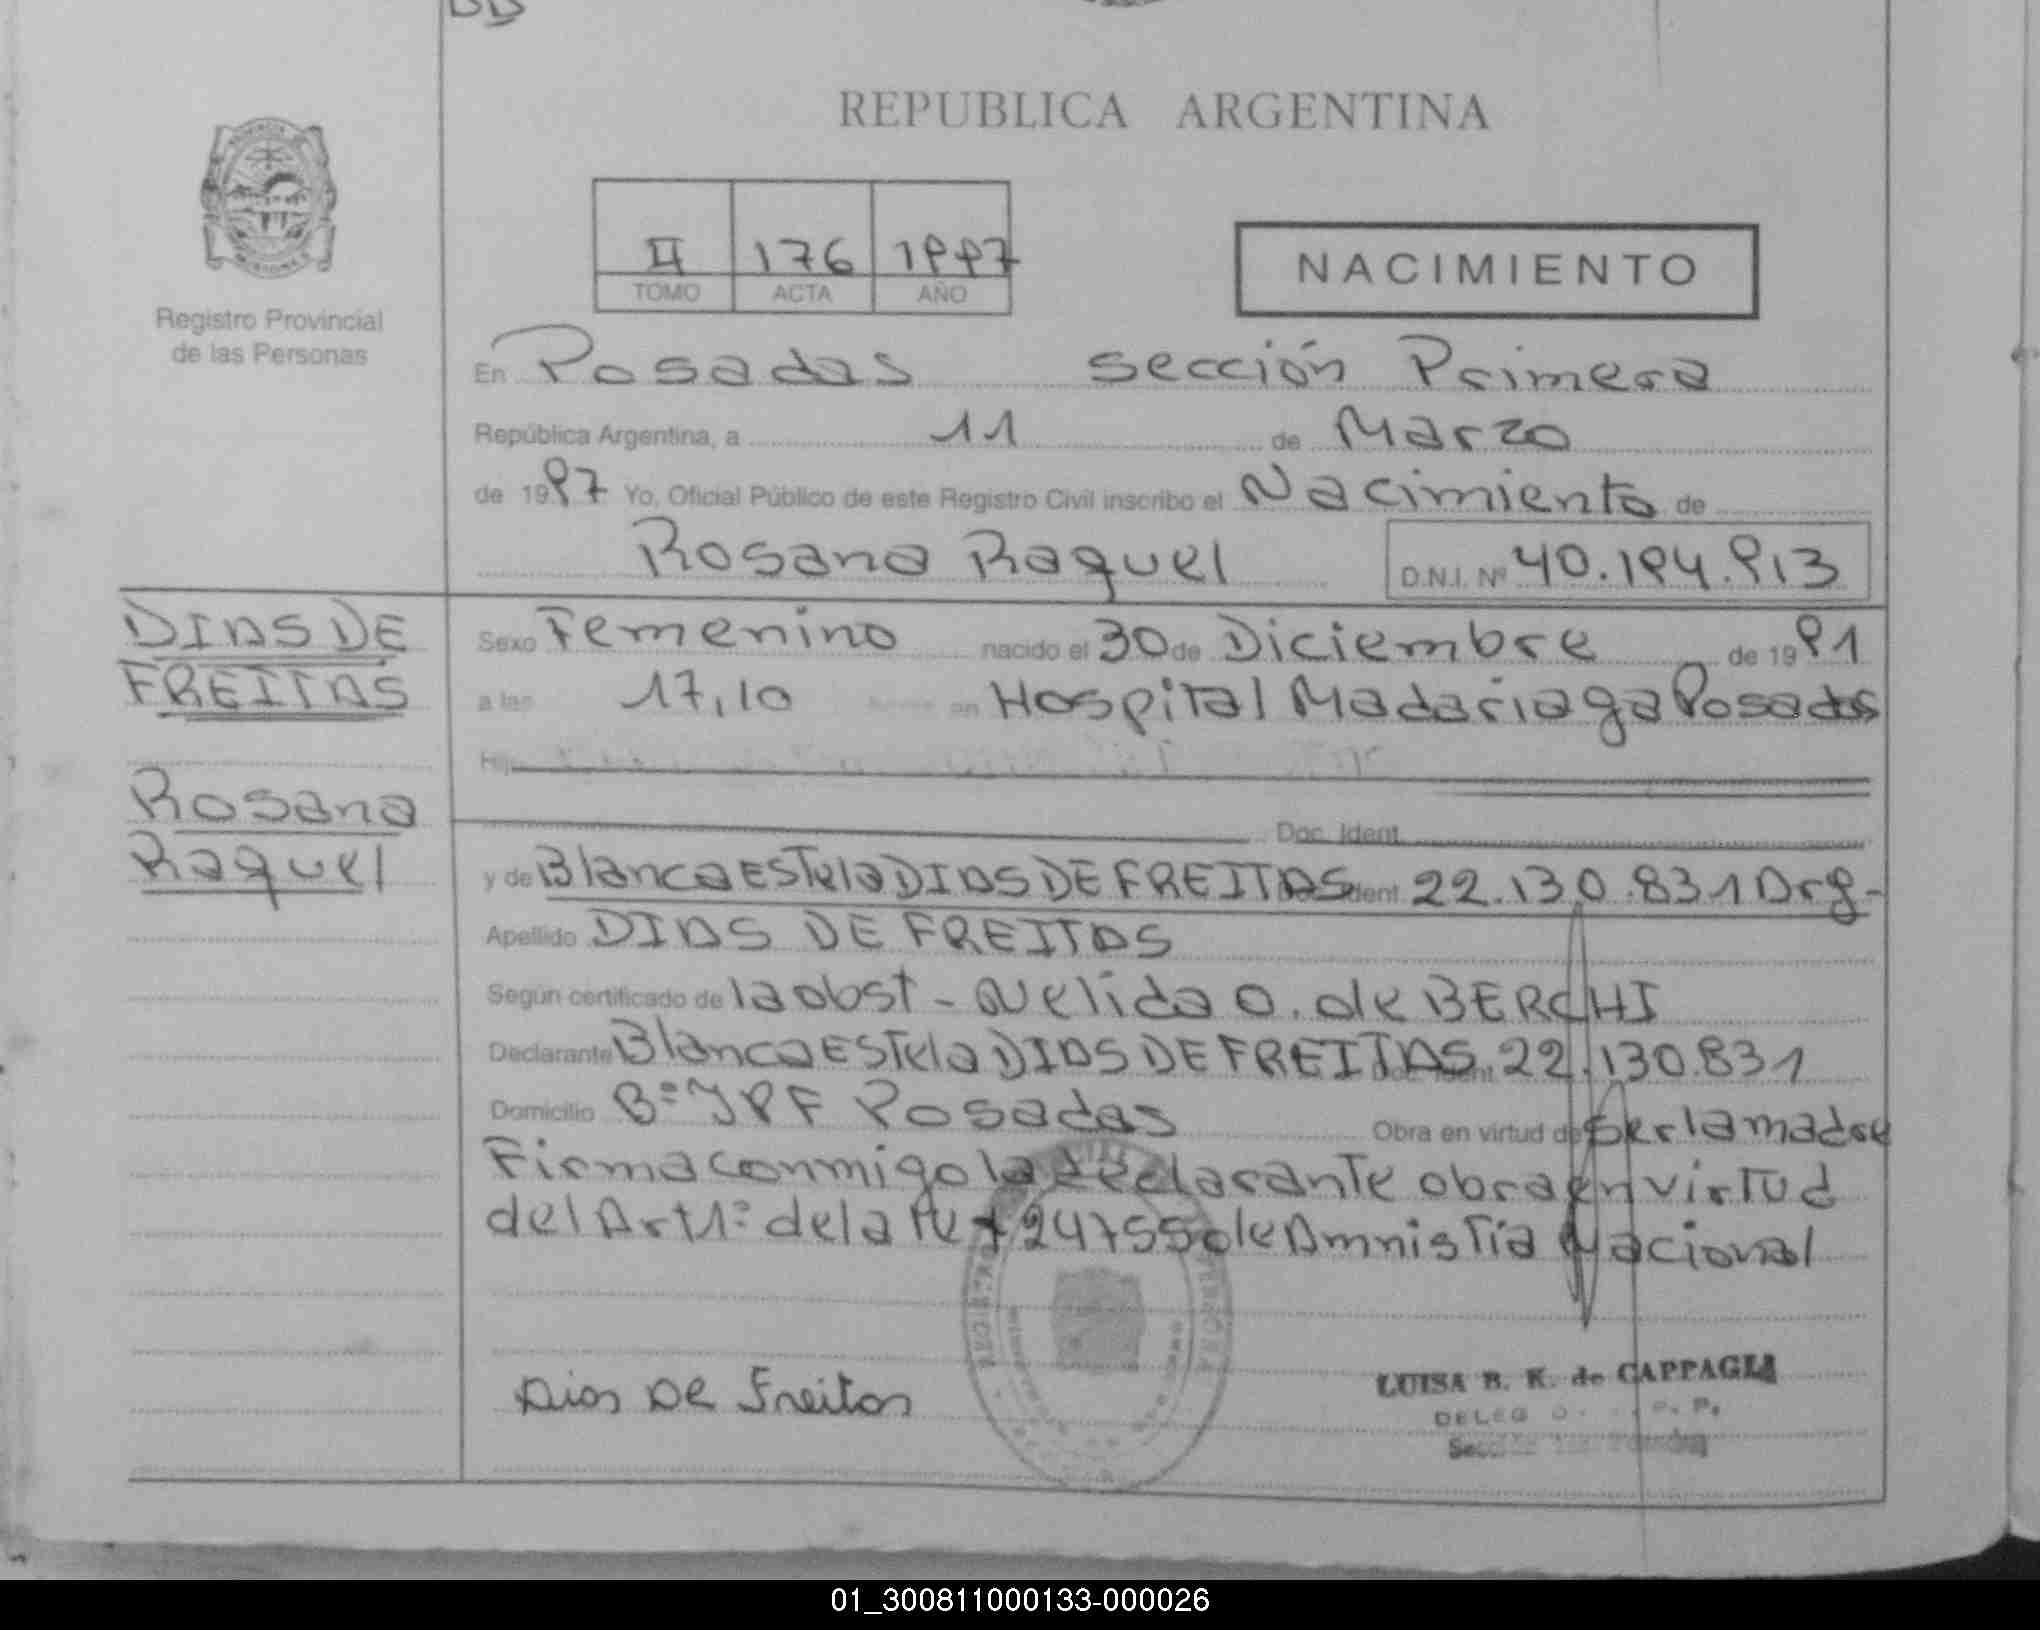 REPUBLICA ARGENTINA
II 176 1997
TOMO ACTA AÑO
NACIMIENTO
Registro Provincial
de las Personas
En Posadas sección Primera
República Argentina, a 11 de Marzo
de 1997 Yo, Oficial Público de este Registro Civil inscribo el Nacimiento de
Rosana Raquel D.N.I. Nº 40.194.913
DIAS DE
FREITAS
Rosana
Raquel
Sexo Femenino nacido el 30 de Diciembre de 1991
a las 17,10 en Hospital Madariaga Posadas
Doc. Ident.
y de Blanca Estela DIAS DE FREITAS Ident 22.130.831 Arg-
Apellido DIAS DE FREITAS
Según certificado de la obst - Nelida O. de BERCHI
Declarante Blanca Estela DIAS DE FREITAS Doc. Ident. 22.130.831
Domicilio Bº YPF Posadas Obra en virtud de ser la madre
Firma conmigo la declarante obra en virtud
del Art 1º de la 24755 de Amnistía Nacional
Dias De Freitas
LUISA B. K. de CAPPAGLI
DELEG
01_300811000133-000026